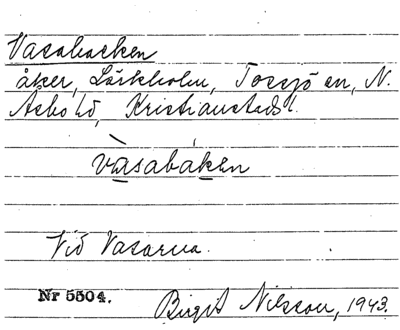 Vasabacken
åker, Lärkholm, Tossjö sn, N.
Åsbo hd, Kristianstads l.
vàsabáken
Vid Vasarna.
Nr 5504.
Birgit Nilsson, 1943.